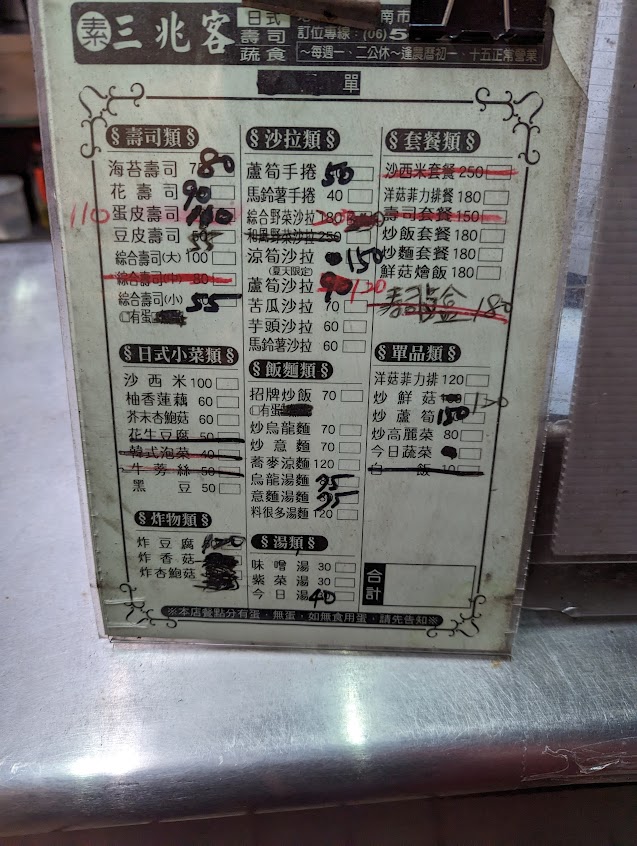 素 三兆客 日式壽司蔬食
南市
訂位專線：(06)5
～每週一、二公休～逢農曆初一、十五正常營業
單
§壽司類§
海苔壽司 80
花壽司 90
蛋皮壽司 110
豆皮壽司 55
綜合壽司(大) 100
綜合壽司(中) 80
綜合壽司(小) 55
有蛋
§日式小菜類§
沙西米 100
柚香蓮藕 60
芥末杏鮑菇 60
花生豆腐 50
韓式泡菜 40
牛蒡絲 50
黑豆 50
§炸物類§
炸豆腐
炸香菇
炸杏鮑菇
§沙拉類§
蘆筍手捲 50
馬鈴薯手捲 40
綜合野菜沙拉 180
和風野菜沙拉 250
涼筍沙拉 150
(夏天限定)
蘆筍沙拉 90
苦瓜沙拉 70
芋頭沙拉 60
馬鈴薯沙拉 60
§飯麵類§
招牌炒飯 70
有蛋
炒烏龍麵 70
炒意麵 70
蕎麥涼麵 120
烏龍湯麵 95
意麵湯麵 95
料很多湯麵 120
§湯類§
味噌湯 30
紫菜湯 30
今日湯 40
§套餐類§
沙西米套餐 250
洋菇菲力排餐 180
壽司套餐 150
炒飯套餐 180
炒麵套餐 180
鮮菇燴飯 180
180
§單品類§
洋菇菲力排 120
炒鮮菇
炒蘆筍 150
炒高麗菜 80
今日蔬菜
白飯 10
合計
※本店餐點分有蛋、無蛋，如無食用蛋，請先告知※